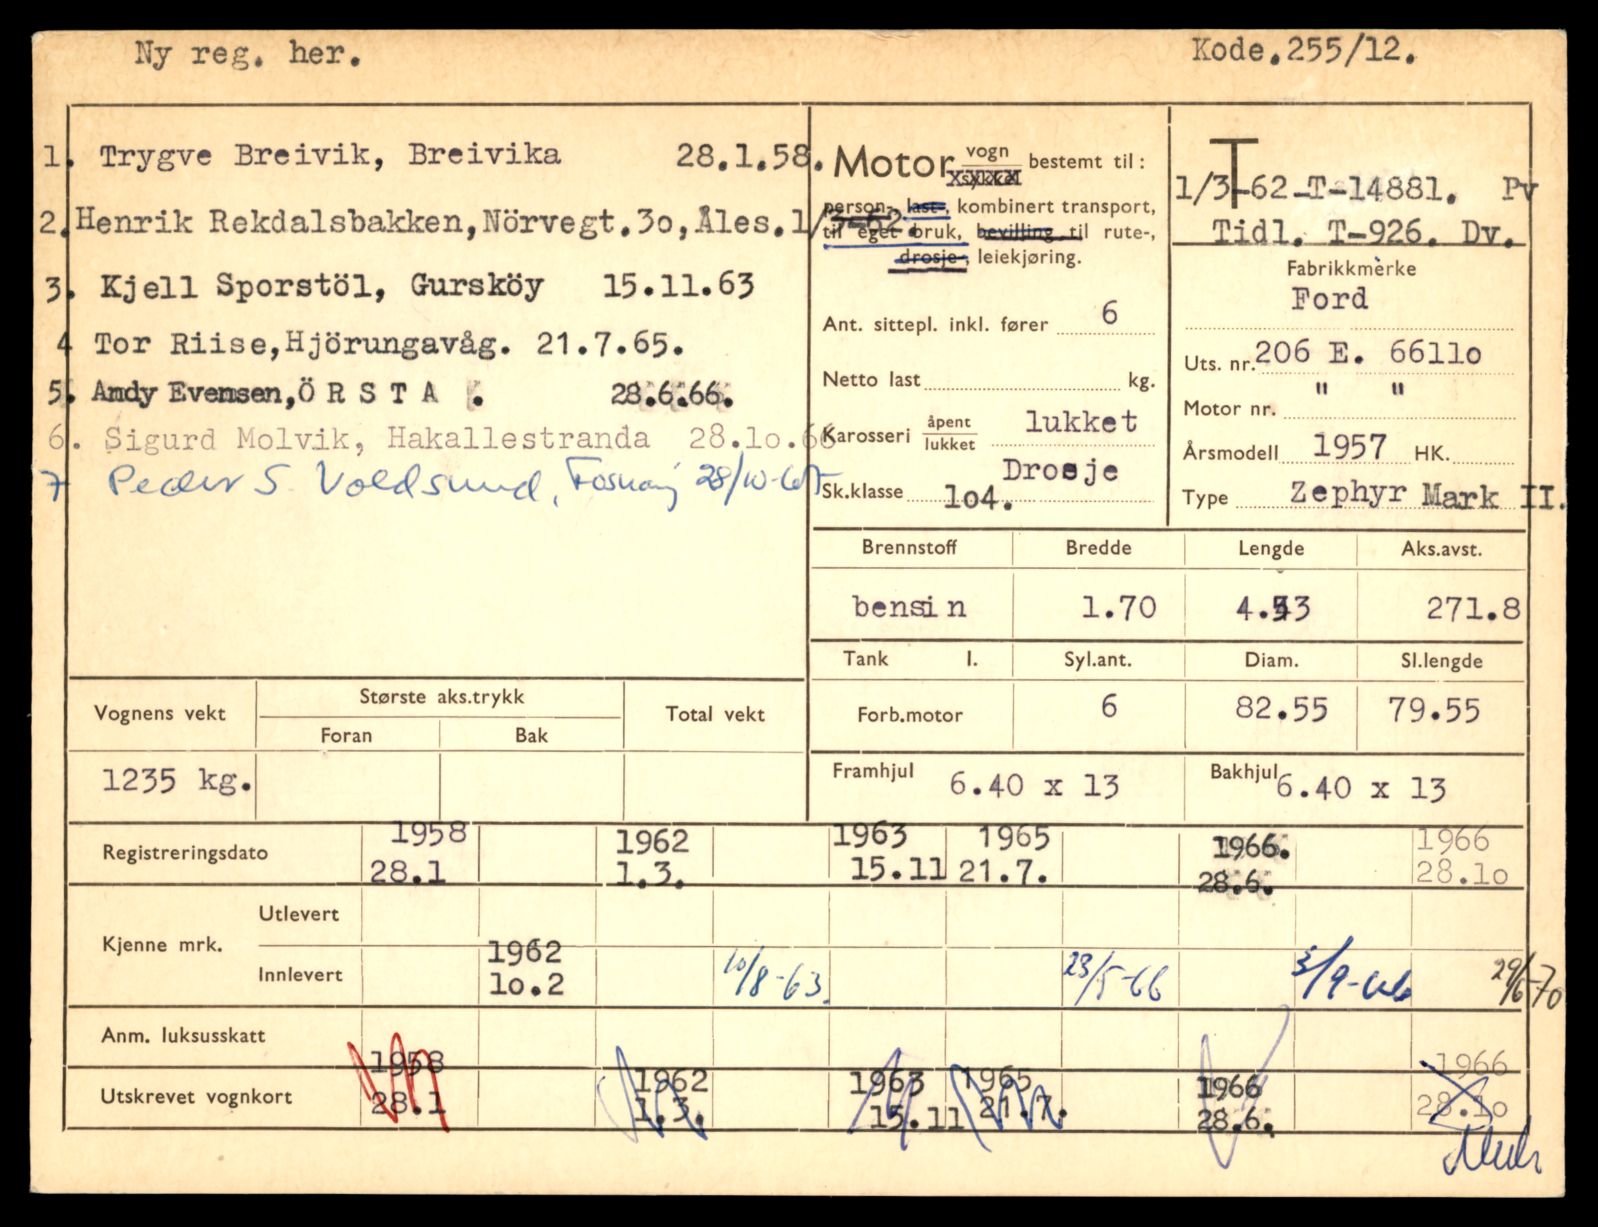 Ny reg. her.
Kode.255/12.
1. Trygve Breivik, Breivika 28.1.58.
2. Henrik Rekdalsbakken, Nörvegt.3o, Åles. 1/3-62.
3. Kjell Sporstöl, Gursköy 15.11.63
4 Tor Riise, Hjörungavåg. 21.7.65.
5. Andy Evensen, Ö R S T A . 28.6.66.
6. Sigurd Molvik, Hakallestranda 28.1o.66
7 Peder S. Voldsund, 28/10-
Motor vogn sykkel bestemt til:
person-, last-, kombinert transport,
til eget bruk, bevilling til rute-,
drosje-, leiekjøring.
Ant. sittepl. inkl. fører 6
Netto last kg.
Karosseri åpent lukket lukket
Drosje
Sk.klasse 1o4.
T
1/3-62 T-14881. Pv
Tidl. T-926. Dv.
Fabrikkmerke
Ford
Uts. nr. 206 E. 6611o
Motor nr. " "
Årsmodell 1957 HK.
Type Zephyr Mark II.
Brennstoff Bredde Lengde Aks.avst.
bensin 1.70 4.53 271.8
Tank l. Syl.ant. Diam. Sl.lengde
Forb.motor 6 82.55 79.55
Framhjul 6.40 x 13 Bakhjul 6.40 x 13
Vognens vekt Største aks.trykk Total vekt
Foran Bak
1235 kg.
Registreringsdato 1958 1962 1963 1965 1966. 1966
28.1 1.3. 15.11 21.7. 28.6. 28.1o
Kjenne mrk. Utlevert
Innlevert 1962 10/8-63. 23/5-66 3/9-66 29/6-70
1o.2
Anm. luksusskatt
Utskrevet vognkort 1958 1962 1963 1965 1966 1966
28.1 1.3. 15.11 21.7. 28.6. 28.1o